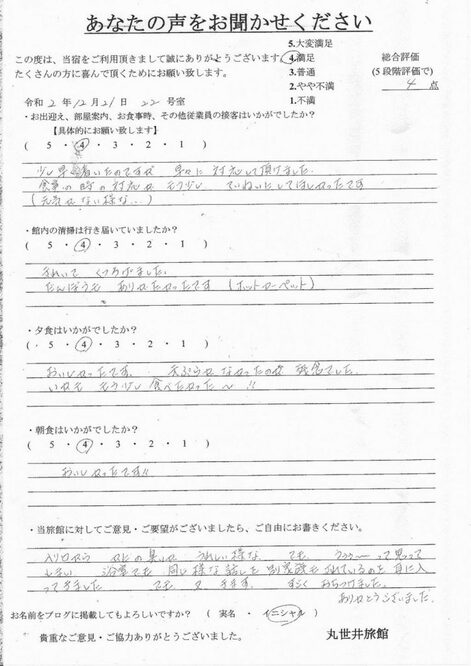 あなたの声をお聞かせください
この度は、当宿をご利用頂きまして誠にありがとうございます。
たくさんの方に喜んで頂くためにお願い致します。
5.大変満足
4.満足
3.普通
2.やや不満
1.不満
総合評価
(5段階評価で)
4 点
令和 2年 12月 21日 22号室
・お出迎え、部屋案内、お食事時、その他従業員の接客はいかがでしたか?
【具体的にお願い致します】
( 5 ・ 4 ・ 3 ・ 2 ・ 1 )
少し早く着いたのですが 早々に対応して頂けました。
食事の時の対応が もう少し ていねいにしてほしかったです
(元気がない様な...)
・館内の清掃は行き届いていましたか?
( 5 ・ 4 ・ 3 ・ 2 ・ 1 )
きれいで くつろげました。
だんぼうも ありがたかったです (ホットカーペット)
・夕食はいかがでしたか?
( 5 ・ 4 ・ 3 ・ 2 ・ 1 )
おいしかったです。 天ぷらがなかったのが 残念でした。
もう少し食べたかった〜!!
・朝食はいかがでしたか?
( 5 ・ 4 ・ 3 ・ 2 ・ 1 )
おいしかったです!!
・当旅館に対してご意見・ご要望がございましたら、ご自由にお書きください。
入り口から カニの臭いが うれしい様な でも って思って
浴室でも 同じ様な話しを されているのを耳に入
ってきました でも すごく おちつけました。
ありがとうございました。
お名前をブログに掲載してもよろしいですか? ( 実名 ・ イニシャル )
貴重なご意見・ご協力ありがとうございました。
丸世井旅館